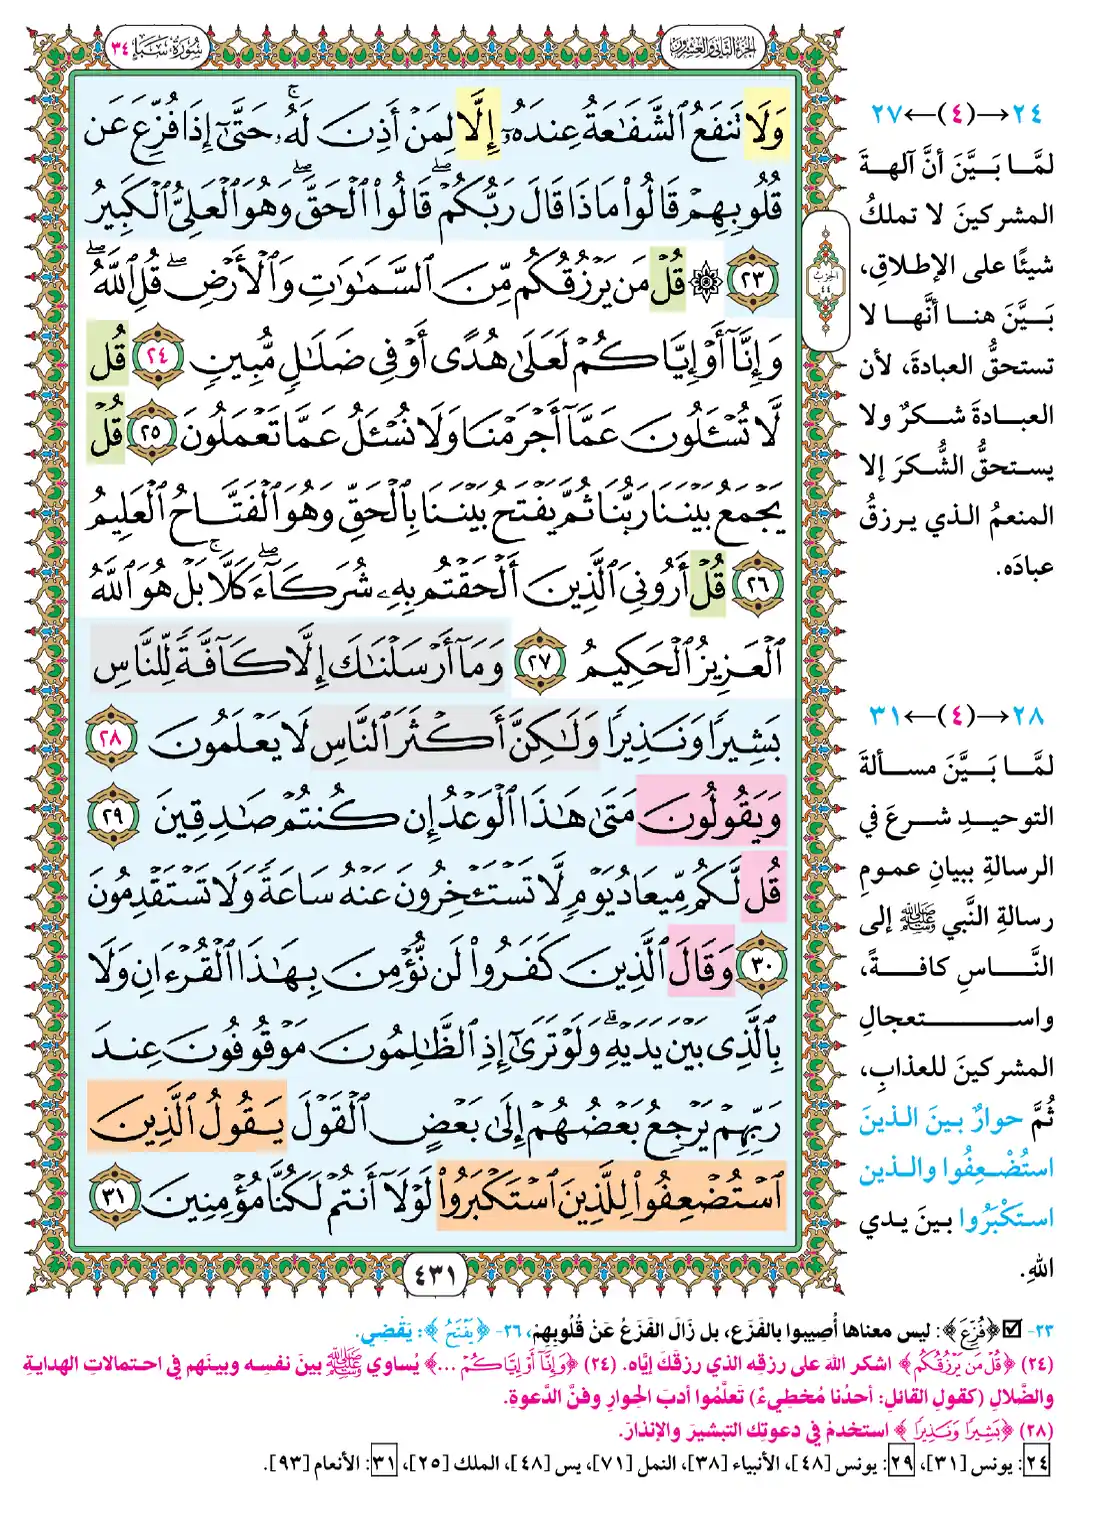 الجزء الثاني والعشرون
سُورَةُ سَبَإٍ ٣٤
وَلَا تَنفَعُ ٱلشَّفَٰعَةُ عِندَهُۥٓ إِلَّا لِمَنْ أَذِنَ لَهُۥ ۚ حَتَّىٰٓ إِذَا فُزِّعَ عَن
قُلُوبِهِمْ قَالُوا۟ مَاذَا قَالَ رَبُّكُمْ ۖ قَالُوا۟ ٱلْحَقَّ ۖ وَهُوَ ٱلْعَلِىُّ ٱلْكَبِيرُ
٢٣ ۞ قُلْ مَن يَرْزُقُكُم مِّنَ ٱلسَّمَٰوَٰتِ وَٱلْأَرْضِ ۖ قُلِ ٱللَّهُ ۖ
وَإِنَّآ أَوْ إِيَّاكُمْ لَعَلَىٰ هُدًى أَوْ فِى ضَلَٰلٍ مُّبِينٍ ٢٤ قُل
لَّا تُسْـَٔلُونَ عَمَّآ أَجْرَمْنَا وَلَا نُسْـَٔلُ عَمَّا تَعْمَلُونَ ٢٥ قُلْ
يَجْمَعُ بَيْنَنَا رَبُّنَا ثُمَّ يَفْتَحُ بَيْنَنَا بِٱلْحَقِّ وَهُوَ ٱلْفَتَّاحُ ٱلْعَلِيمُ
٢٦ قُلْ أَرُونِىَ ٱلَّذِينَ أَلْحَقْتُم بِهِۦ شُرَكَآءَ ۖ كَلَّا ۚ بَلْ هُوَ ٱللَّهُ
ٱلْعَزِيزُ ٱلْحَكِيمُ ٢٧ وَمَآ أَرْسَلْنَٰكَ إِلَّا كَآفَّةً لِّلنَّاسِ
بَشِيرًا وَنَذِيرًا وَلَٰكِنَّ أَكْثَرَ ٱلنَّاسِ لَا يَعْلَمُونَ ٢٨
وَيَقُولُونَ مَتَىٰ هَٰذَا ٱلْوَعْدُ إِن كُنتُمْ صَٰدِقِينَ ٢٩
قُل لَّكُم مِّيعَادُ يَوْمٍ لَّا تَسْتَـْٔخِرُونَ عَنْهُ سَاعَةً وَلَا تَسْتَقْدِمُونَ
٣٠ وَقَالَ ٱلَّذِينَ كَفَرُوا۟ لَن نُّؤْمِنَ بِهَٰذَا ٱلْقُرْءَانِ وَلَا
بِٱلَّذِى بَيْنَ يَدَيْهِ ۗ وَلَوْ تَرَىٰٓ إِذِ ٱلظَّٰلِمُونَ مَوْقُوفُونَ عِندَ
رَبِّهِمْ يَرْجِعُ بَعْضُهُمْ إِلَىٰ بَعْضٍ ٱلْقَوْلَ يَقُولُ ٱلَّذِينَ
ٱسْتُضْعِفُوا۟ لِلَّذِينَ ٱسْتَكْبَرُوا۟ لَوْلَآ أَنتُمْ لَكُنَّا مُؤْمِنِينَ ٣١
٤٣١
الحزب
٤٤
٢٤→(٤)←٢٧
لمَّا بَيَّنَ أنَّ آلهةَ
المشركينَ لا تملكُ
شيئًا على الإطلاقِ،
بَيَّنَ هنا أنَّها لا
تستحقُّ العبادةَ، لأن
العبادةَ شكرٌ ولا
يستحقُّ الشُّكرَ إلا
المنعمُ الذي يرزقُ
عبادَه.
٢٨→(٤)←٣١
لمَّا بَيَّنَ مسألةَ
التوحيدِ شرعَ في
الرسالةِ ببيانِ عمومِ
رسالةِ النَّبي ﷺ إلى
النَّاسِ كافةً،
واستعجالِ
المشركينَ للعذابِ،
ثُمَّ حوارٌ بينَ الذينَ
استُضْعِفُوا والذين
استكْبَرُوا بينَ يدي
اللهِ.
٢٣- ☑ ﴿فُزِّعَ﴾: ليس معناها أُصِيبوا بالفَزَعِ، بل زَالَ الفَزَعُ عَنْ قُلُوبِهِمْ، ٢٦- ﴿يَفْتَحُ﴾: يَقْضِي.
(٢٤) ﴿قُلْ مَن يَرْزُقُكُم﴾ اشكر اللهَ على رزقِه الذي رزقَكَ إيَّاه. (٢٤) ﴿وَإِنَّآ أَوْ إِيَّاكُمْ ...﴾ يُساوي ﷺ بينَ نفسِه وبينَهم في احتمالاتِ الهدايةِ
والضَّلالِ (كقولِ القائلِ: أحدُنا مُخطِيءٌ) تَعلَّمُوا أدبَ الحِوارِ وفنَّ الدَّعوةِ.
(٢٨) ﴿بَشِيرًا وَنَذِيرًا﴾ استخدمْ في دعوتِك التبشيرَ والإنذارَ.
٢٤: يونس [٣١]، ٢٩: يونس [٤٨]، الأنبياء [٣٨]، النمل [٧١]، يس [٤٨]، الملك [٢٥]، ٣١: الأنعام [٩٣].